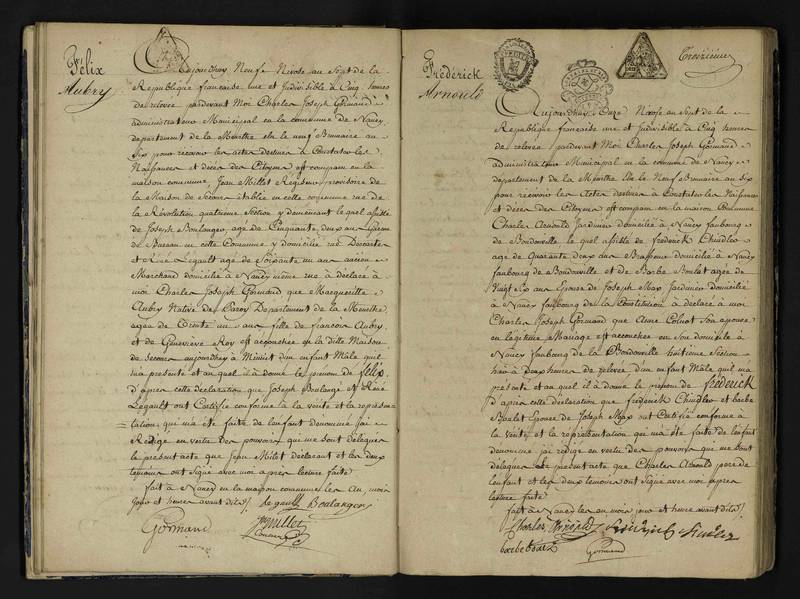 Félix
Aubry
Aujourdhuy Neuf Nivose an Sept de la
Republique francaise une et Indivisible à Cinq heures
de relevée pardevant Moi Charles Joseph Gormand
administrateur Municipal en la commune de Nancy
departement de la Meurthe elu le neuf Brumaire an
Six pour recevoir les actes destinés à Constater les
Naissances et décès des Citoyens est comparu en la
maison commune Jean Millet Regisseur provisoire de
la Maison de Secours établie en cette commune rue de
la Révolution quatrieme Section y demeurant le quel assisté
de Joseph Boulanger age de Cinquante deux ans
de Bureau en cette Commune y domicilié rue Descartes
et René Légault age de Soixante un ans ancien
Marchand domicilié à Nancy même rue à déclaré à
moi Charles Joseph Gormand que Marguerite
Aubry Native de Paroy Departement de la Meurthe
agée de Trente un ans fille de francois Aubry
et de Genevieve Roy est accouchée en la ditte Maison
de secours aujourdhuy à Minuit d'un enfant Mâle quil
ma présenté et au quel il à donné le prenom de félix
d'après cette déclaration que Joseph Boulangé et René
Legault ont Certifié conforme à la vérité et la représen-
tation qui ma été faite de lenfant denommé jai
Redigé en vertu des pouvoirs qui me sont délégués
le présent acte que Jean Millet déclarant et les deux
temoins ont Signé avec moi après lecture faite
fait à Nancy en la maison commune les An, mois
Jour et heures avant dits /.
Legault Boulanger
Gormand
Millet
Frédérick
Arnould
Troisieme
Aujourdhuy Onze Nivose an Sept de la
Republique française une et Indivisible à Cinq heures
de relevée pardevant Moi Charles Joseph Gormand
administrateur Municipal en la commune de Nancy
département de la Meurthe Elu le Neuf Brumaire an six
pour recevoir les Actes destinés à Constater les Naissances
et décès des Citoyens est comparu en la maison Commune
Charles Arnould Jardinier domicilié à Nancy faubourg
de Boudonville le quel assisté de frederick Chindler
age de Quarante deux ans Brasseur domicilié à Nancy
faubourg de Boudonville et de Barbe Boulet agée de
Vingt Six ans Epouse de Joseph May Jardinier domicilié
à Nancy faubourg de la Constitution à déclaré à moi
Charles Joseph Gormand que Anne Colnot Son épouse
en légitime Mariage est accouchée en son domicile à
Nancy faubourg de la Boudonville huitieme Section
hier à Deux heures de relevée d'un enfant Mâle quil ma
présenté et au quel il à donné le prenom de frederick
d'après cette déclaration que frederick Chindler et barbe
Boulet Epouse de Joseph May ont Certifié conforme à
la Vérité et la représentation qui ma été faite de lenfant
denommé jai redigé en vertu des pouvoirs qui me sont
délégués le présent acte que Charles Arnould pere de
lenfant et les deux temoins ont signé avec moi après
lecture faite
fait à Nancy les an mois jour et heure avant dits /.
Charles Arnould
barbe boulet
Gormand